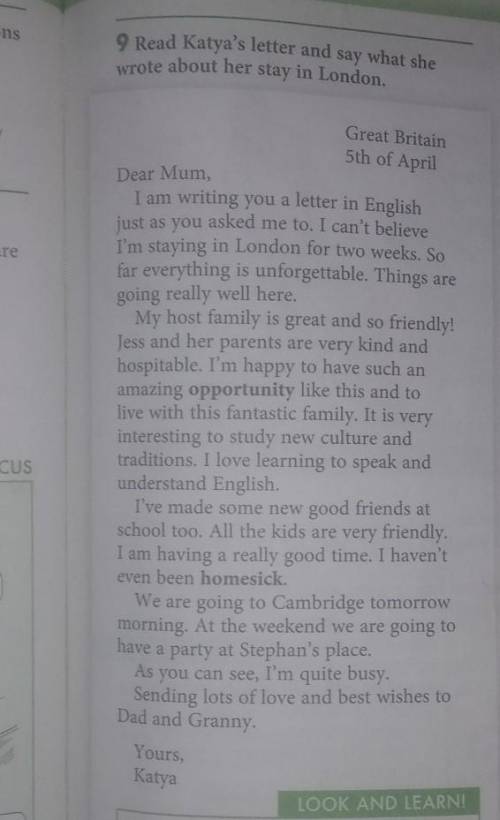 ns
9 Read Katya's letter and say what she
wrote about her stay in London.
Great Britain
5th of April
Dear Mum,
I am writing you a letter in English
just as you asked me to. I can't believe
I'm staying in London for two weeks. So
far everything is unforgettable. Things are
going really well here.
My host family is great and so friendly!
Jess and her parents are very kind and
hospitable. I'm happy to have such an
amazing opportunity like this and to
live with this fantastic family. It is very
interesting to study new culture and
traditions. I love learning to speak and
understand English.
I've made some new good friends at
school too. All the kids are very friendly.
I am having a really good time. I haven't
even been homesick.
We are going to Cambridge tomorrow
morning. At the weekend we are going to
have a party at Stephan's place.
As you can see, I'm quite busy.
Sending lots of love and best wishes to
Dad and Granny.
Yours,
Katya
LOOK AND LEARN!
re
CUS